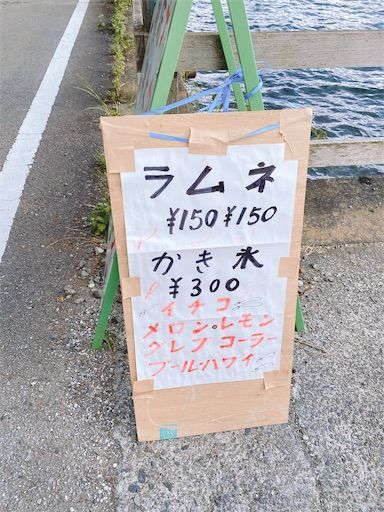 ラムネ
¥150 ¥150
かき氷
¥300
イチゴ
メロン・レモン
グレプ コーラー
ブールハワイ